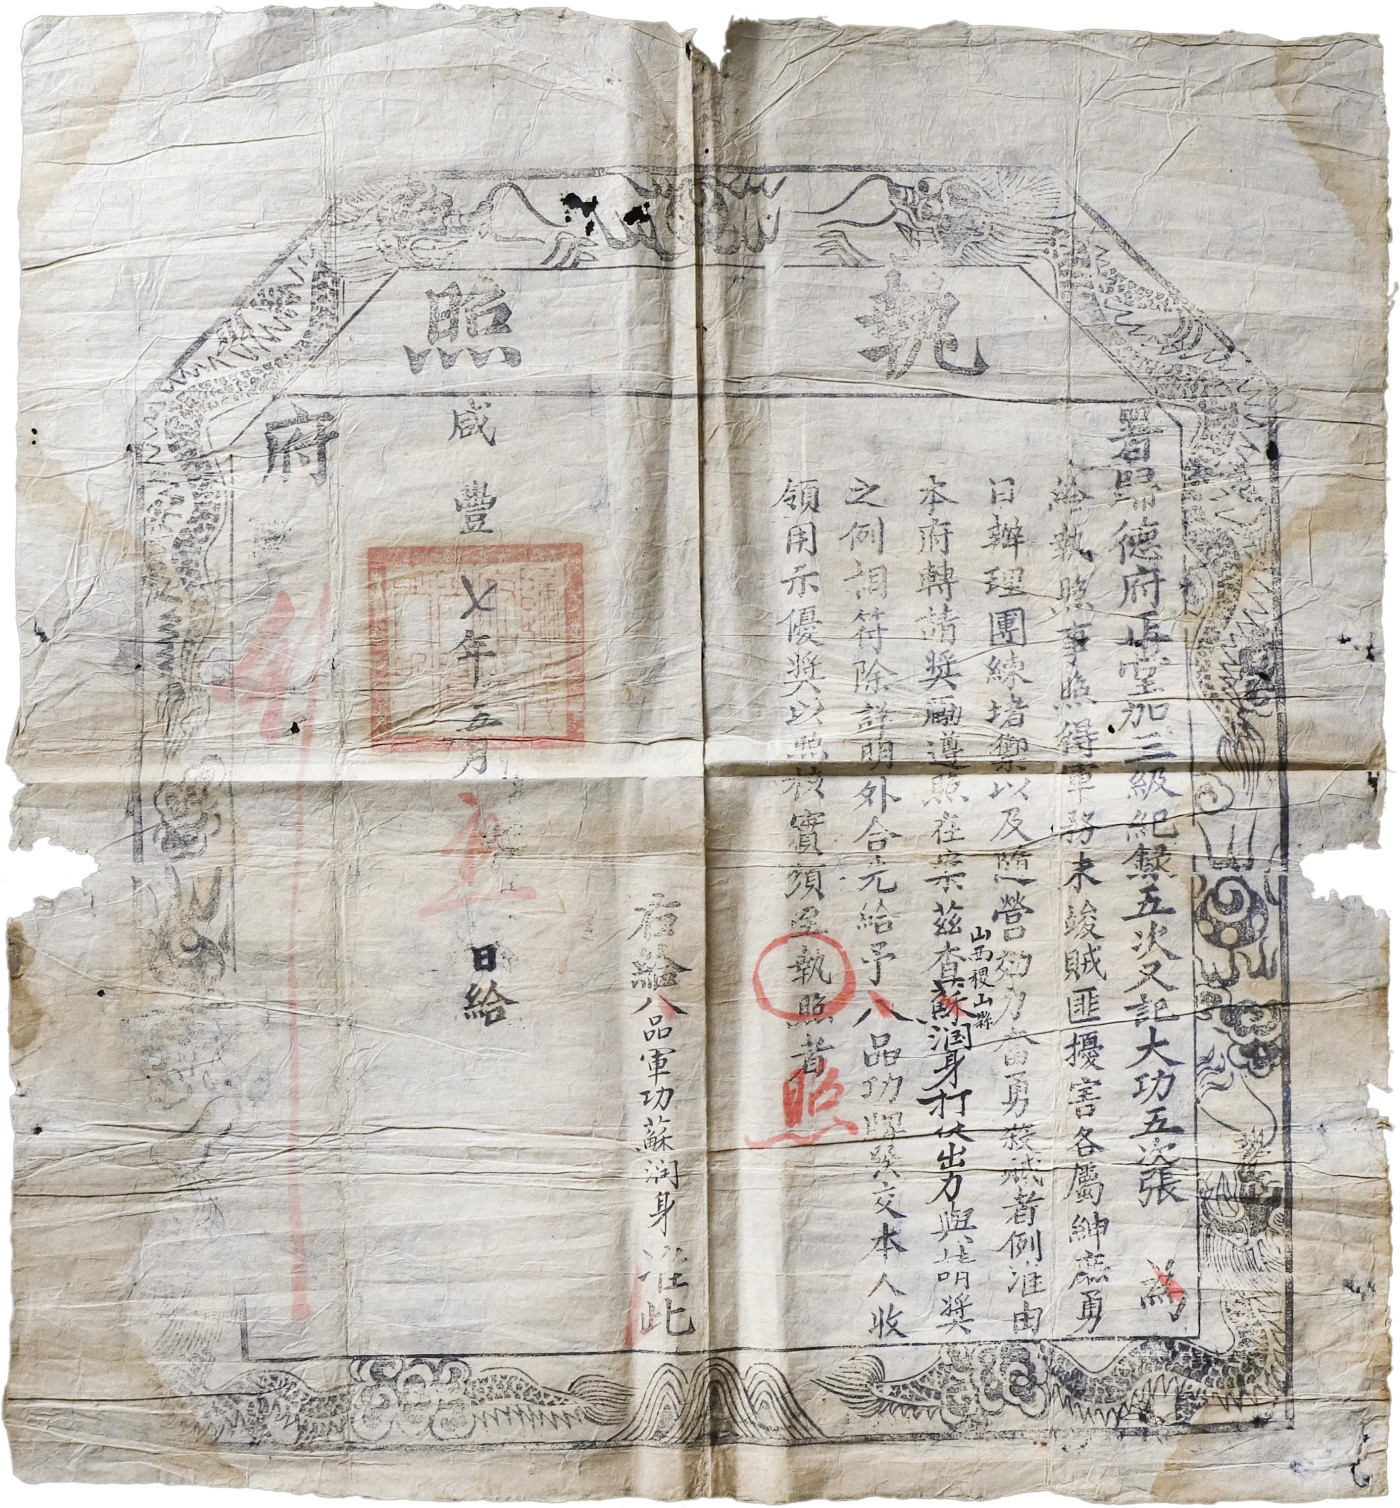 執照
署歸德府正堂加三級紀錄五次又記大功五次張 為
給執照事照得軍務未竣賊匪擾害各屬紳庶勇
日辦理團練堵禦以及隨營効力奮勇殺賊者例准由
本府轉請獎勵遵照在案茲查山西稷山縣蘇润身打仗出力與請獎
之例相符除詳明外合先給予八品功牌發交本人收
領用示優獎以照核實須至執照者
照
右給八品軍功蘇润身准此
咸豐七年五月 日給
府